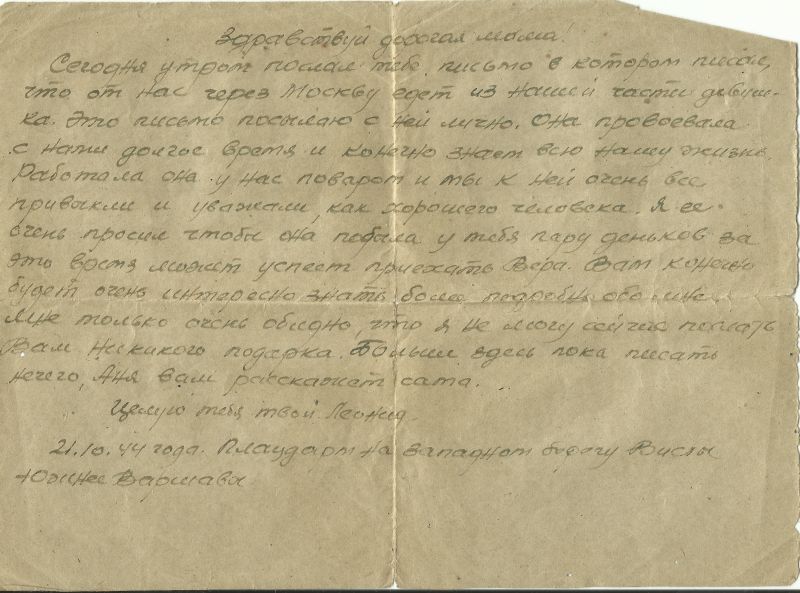 Здравствуй дорогая мама!
Сегодня утром послал тебе письмо в котором писал,
что от нас через Москву едет из нашей части девуш-
ка. Это письмо посылаю с ней лично. Она провоевала
с нами долгое время и конечно знает всю нашу жизнь.
Работала она у нас поваром и мы к ней очень все
привыкли и уважали, как хорошего человека. Я ее
очень просил чтобы она побыла у тебя пару деньков за
это время может успеет приехать Вера. Вам конечно
будет очень интересно знать более подробно обо мне
Мне только очень обидно, что я не могу сейчас послать
Вам никакого подарка. Больше здесь пока писать
нечего, Аня вам расскажет сама.
Целую тебя твой Леонид.
21.10.44 года. Плацдарм на западном берегу Вислы
Южнее Варшавы